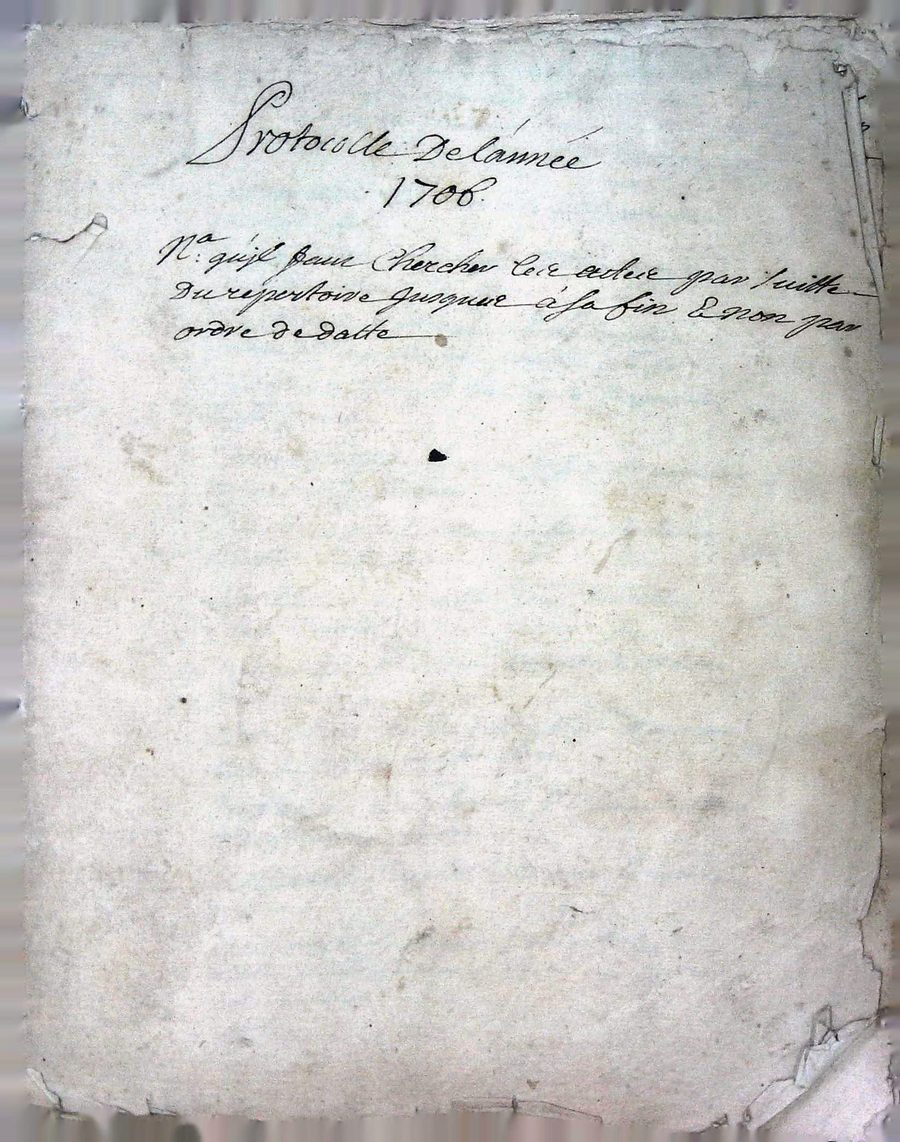 Protocolle De l'année
1706.
Na: qu'jl faut Chercher les actes par suitte
Du répertoire Jusques à sa fin & non par
ordre de datte